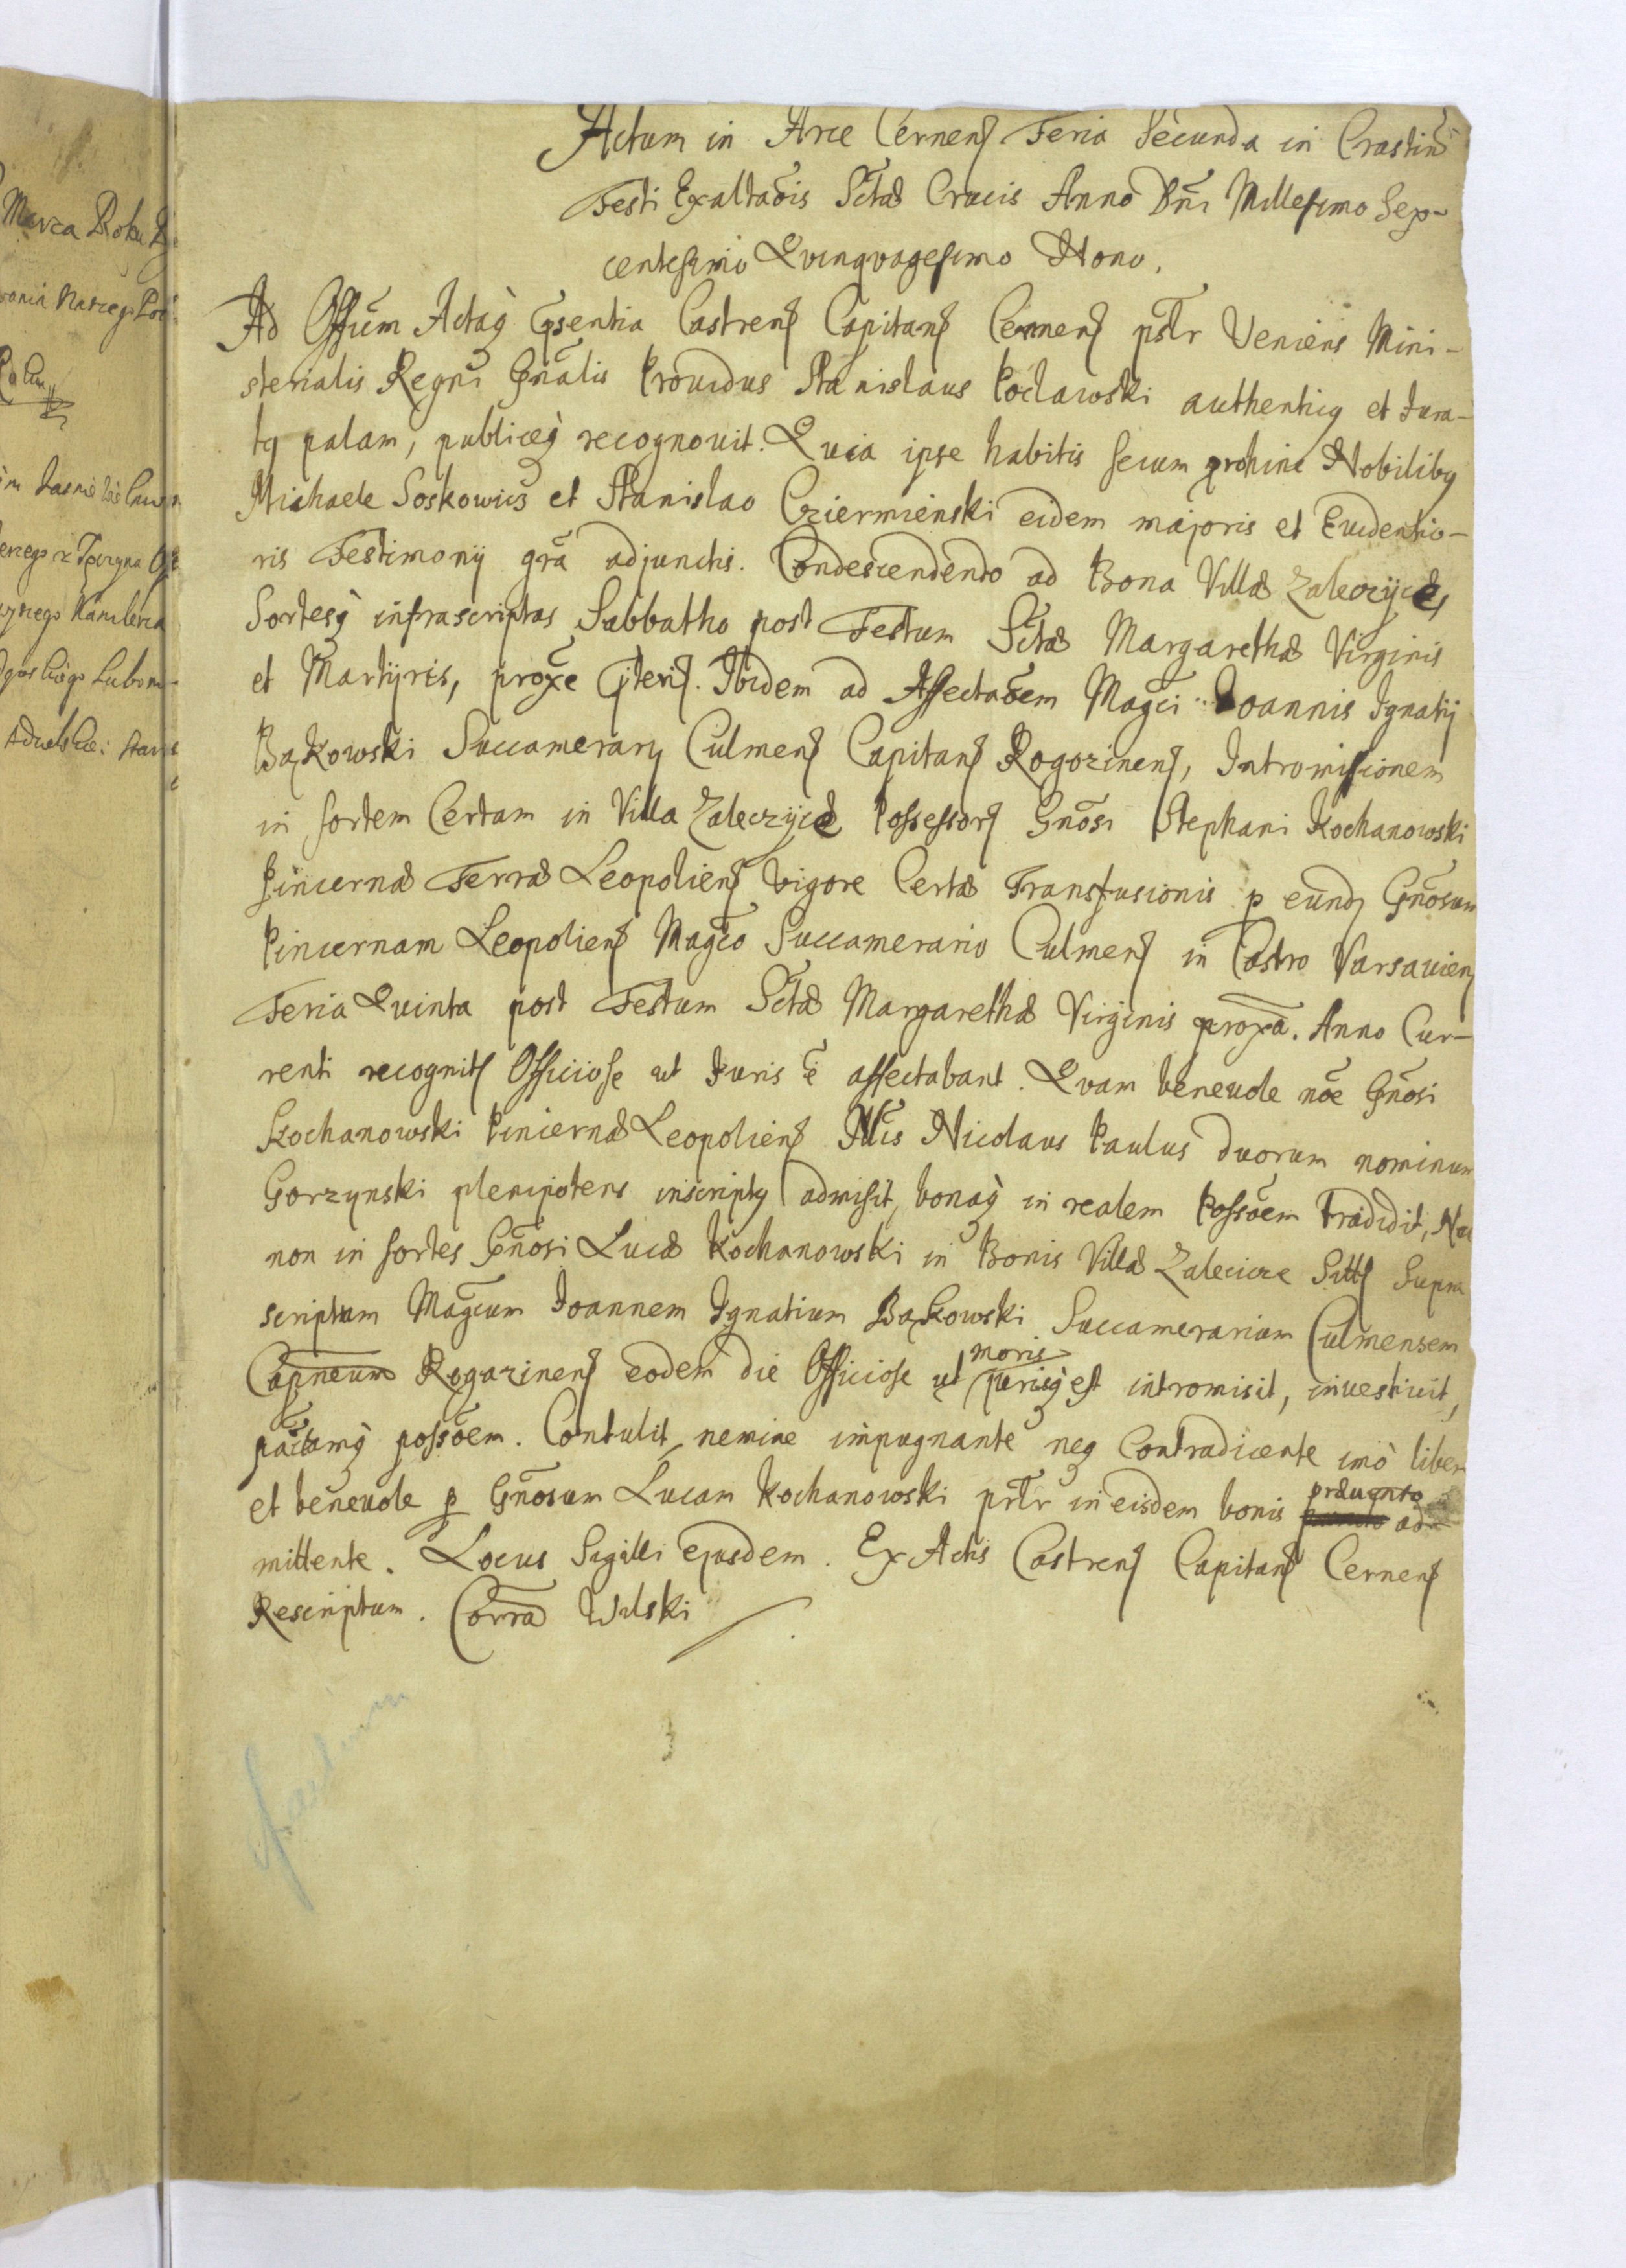 Actum in Arce Cernen Feria Secunda in Crastino
Festi Exaltaõis Sctæ Crucis Anno Dñi Millesimo Sep-
centesimo Qvinqvagesimo Nono.
Ad Offum Actaq; psentia Castren Capitan Cernen pstr Veniens Mini-
sterialis Regni Gñalis Providus Stanislaus Poclawski authenticq et Jura-
tq palam, publiceq; recognovit. Qvia ipse habitis secum prohinc Nobilibq
Michaele Soskowicz et Stanislao Cziermienski eidem majoris et Evidentio-
ris Testimonij grã adjunctis. Condescendendo ad Bona Villæ Zaleczyce,
Sortesq; infrascriptas Sabbatho post Festum Sctæ Margarethæ Virginis
et Martyris, proxe pteris. Ibidem ad Affectaõem Magci Joannis Ignatij
Bąkowski Succamerarij Culmen Capitan Rogozinen, Intromissionem
in sortem Certam in Villa Zaleczyce Possessor Gñosi Stephani Kochanowski
Pincernæ Terræ Leopolien Vigore Certæ Transfusionis p eund Gñosum
Pincernam Leopolien Magco Succamerario Culmen in Castro Varsavien
Feria Qvinta post Festum Sctæ Margarethæ Virginis proxa. Anno Cur-
renti recognit Officiose ut Juris ẽ affectabant. Qvam benevole nõe Gñosi
Kochanowski Pincernæ Leopolien Mcis Nicolaus Paulus duorum nominum
Gorzynski plenipotens inscriptq admisit, bonaq; in realem Possõem tradidit, Nec
non in sortes Gñosi Lucæ Kochanowski in Bonis Villæ Zalecicze Sitt Supra
scriptum Magcum Joannem Ignatium Bąkowski Succamerarium Culmensem
Capneum Rogozinen eodem die Officiose ut moris jurisq; est intromisit, investivit,
pactamq; possõem. Contulit, nemine impugnante neq Contradicente imò libere
et benevole p Gñosum Lucam Kochanowski prtr in eisdem bonis prævento ad-
mittente. Locus Sigilli ejusdem. Ex Actis Castren Capitan Cernen
Rescriptum. Corra Wilski